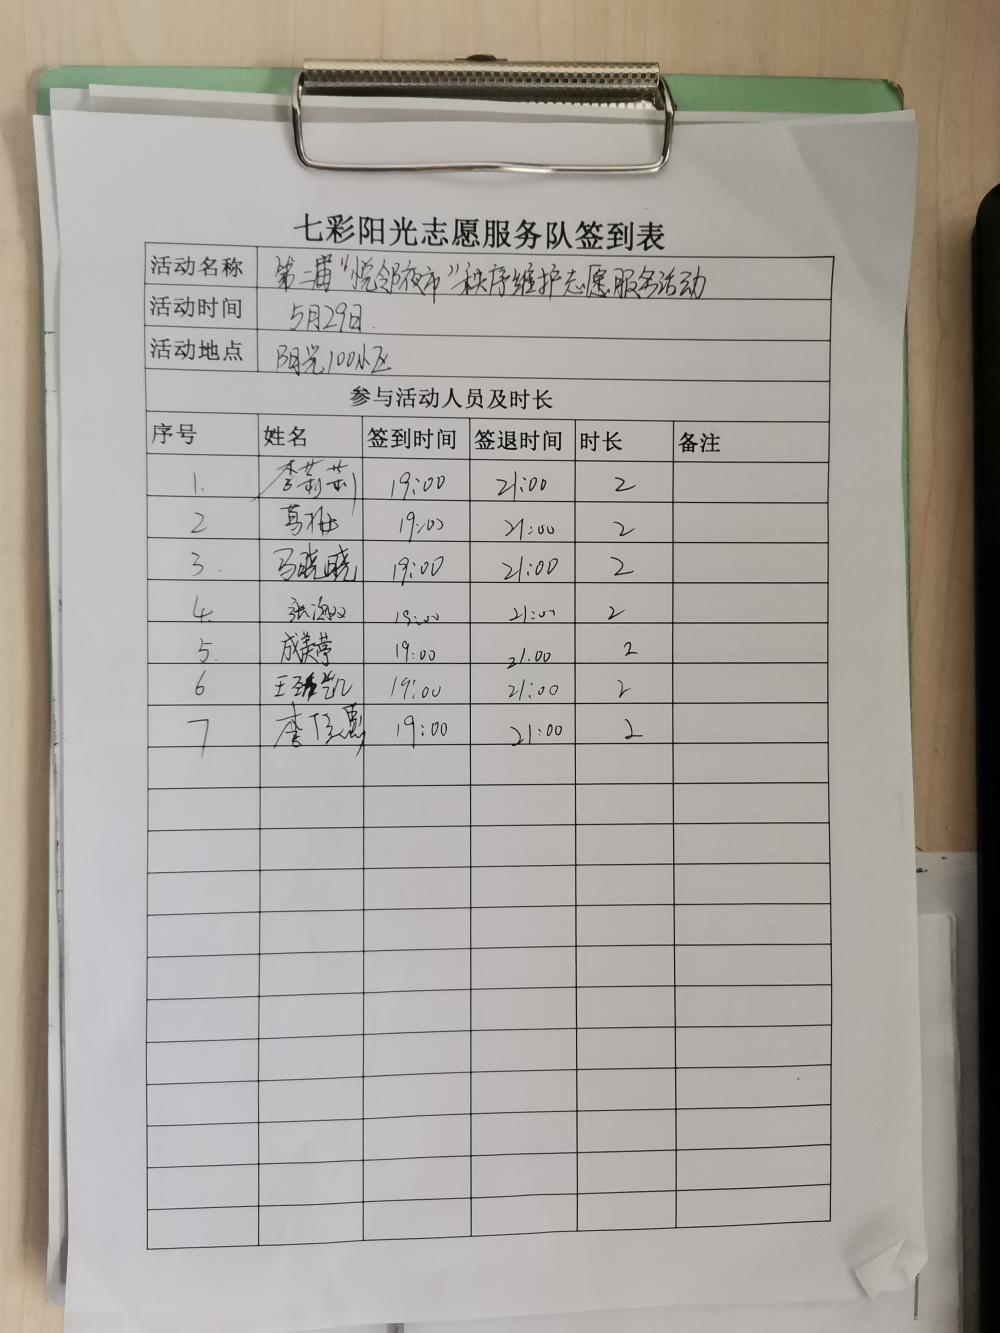 七彩阳光志愿服务队签到表
活动名称 第二届“悦邻夜市”秩序维护志愿服务活动
活动时间 5月29日.
活动地点 阳光100小区
参与活动人员及时长
序号 姓名 签到时间 签退时间 时长 备注
1. 李莉莉 19:00 21:00 2
2 葛梅 19:00 21:00 2
3. 马晓晓 19:00 21:00 2
4. 张海 19:00 21:00 2
5. 成美 19:00 21:00 2
6 王 凯 19:00 21:00 2
7 李 19:00 21:00 2